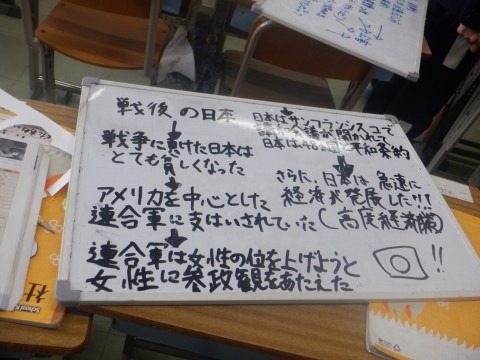 戦後の日本
↓
戦争に負けた日本は
とても貧しくなった
↓
アメリカを中心とした
連合軍に支はいされていた
↓
連合軍は女性の位を上げようと
女性に参政観をあたえた
↓
日本はサンフランシスコで
講和会議が開かれて
日本は48カ国と平和条約
↓
さらに、日本は急速に
経済が発展した!!!
(高度経済
!!
社